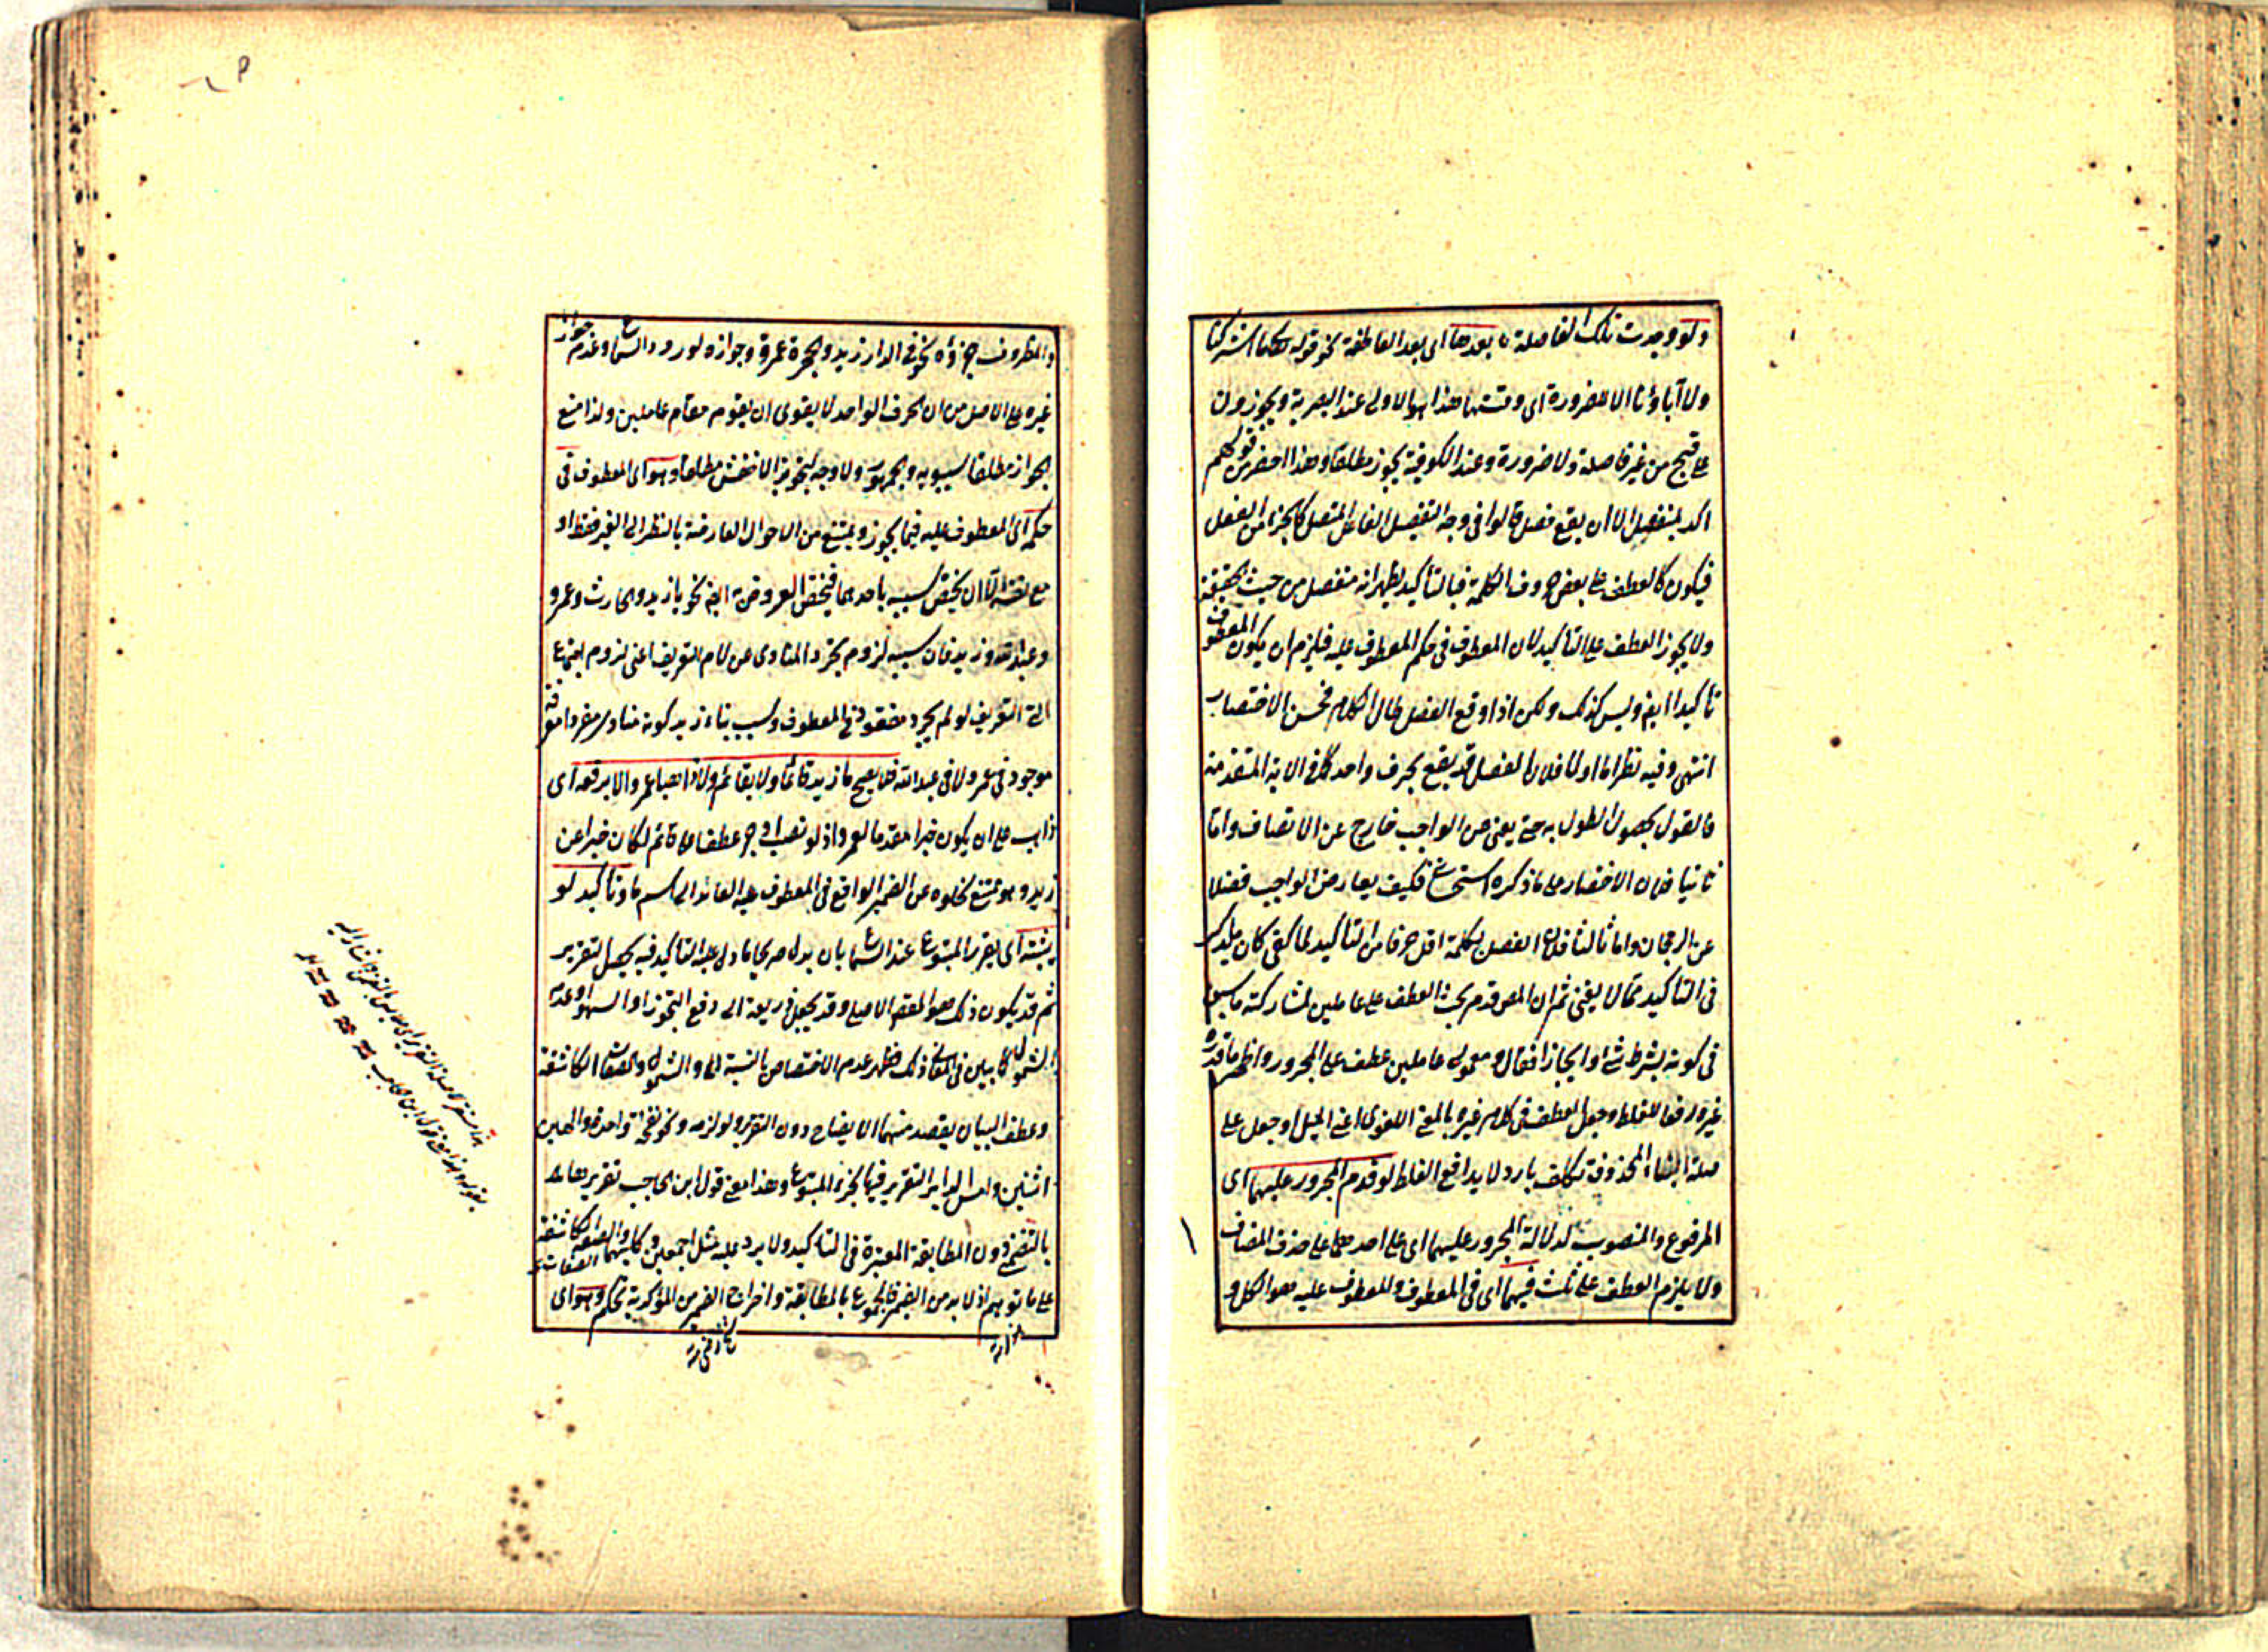 ولو وجدت تلك الفاصلة بعدها اى بعد العاطفة نحو قوله تعالى ما اشركنا
ولا آباؤنا الا للضرورة اى وقتها هذا هو الاولى عند البصرية ويجوزون
على قبح من غير فاصلة ولا ضرورة وعند الكوفية يجوز مطلقا وهذا اخصر من قولهم
اكد بمنفصل الا ان يقع فصل قالوا فى وجه التفصيل الفاعل المتصل كالجزء من الفعل
فيكون كالعطف على بعض حروف الكلمة فبالتأكيد يظهر انه منفصل من حيث الحقيقة
ولا يجوز العطف على التأكيد لان المعطوف فى حكم المعطوف عليه فيلزم ان يكون المعطوف
تأكيدا ايضا وليس كذلك ولكن اذا وقع الفصل طال الكلام فحسن الاختصار
انتهى وفيه نظر اما اولا فلان الفصل قد يقع بحرف واحد كما فى الاية المتقدمة
فالقول بحصول الطول به حتى يغنى عن الواجب خارج عن الانصاف واما
ثانيا فلان الاختصار على ما ذكره استحسانى فكيف يعارض الواجب فضلا
عن الرجحان واما ثالثا فلان الفصل بكلمة اقل حرفا من التأكيد لما كفى كان
فى التأكيد مما لا يغنى ثم ان المص قدم بحث العطف على عاملين لمشاركته ما سبق
فى كونه بشرط شئ او ايجاز فقال ومعمولى عاملين عطف على المجرور واظهر ما قدره
غيره دفعا للغلط وجعل العطف فى كلام غيره بالمعنى اللغوى اعنى الميل او جعل على
صلة البناء المحذوفة تكلف بارد لا يدافع الغلط لو قدم المجرور عليهما اى
المرفوع والمنصوب لدلالة المجرور عليهما اى على احدهما على حذف المضاف
ولا يلزم العطف على ثلث فيهما اى فى المعطوف والمعطوف عليه هو الكل و
والمظروف جزؤه نحو فى الدار زيد والحجرة عمرو وجوازه لورود السماع وعدم جواز
غيره على الاصل من ان الحرف الواحد لا يقوى ان يقوم مقام عاملين ولذا منع
الجواز مطلقا سيبويه والجمهور ولا وجه لتجويز الاخفش مطلقا وهو اى المعطوف فى
حكمه اى المعطوف عليه فيما يجوز ويمتنع من الاحوال العارضة بالنظر الى الغير فقط او
مع نفسه الا ان يختص سببه باحدهما فيختص العروض به ايضا نحو يا زيد والحارث وعمرو
وعبد الله وزيد فان سبب لزوم تجرد المنادى عن لام التعريف اعنى لزوم اجتماع
الة التعريف لو لم يجرد مفقود فى المعطوف وسبب بناء زيد كونه منادى مفردا معرفة
موجود فى عمرو لا فى عبد الله فلا يصح ما زيد قائما ولا بقائم ولا ذاهبا عمرو الا برفعه اى
ذاهب على ان يكون خبرا مقدما لعمرو اذ لو نصب او جر عطفا على قائم لكان خبرا عن
زيد وهو ممتنع لخلوه عن الضمير الواقع فى المعطوف عليه العائد الى اسم ما وتأكيد لو
يثبته اى يقرر المتبوع عند السماع بان يدل صريحا ما دل عليه التأكيد فيه يحصل التقرير
ثم قد يكون ذلك هو المقصود الاصلى وقد يجعل ذريعة الى دفع التجوز او السهو او عدم
الشمول كما بين فى المعانى ذلك فظهر عدم الاختصاص بالنسبة الى والشمول والصفات الكاشفة
وعطف البيان يقصد منهما الايضاح دون التقرير ولو لزمه ونحو نفخة واحدة والهين
اثنين وامس الدابر التقرير فيها لجزء المتبوع وهذا معنى قول ابن الحاجب تقرير معناه
بالتضمن دون المطابقة المعتبرة فى التأكيد ولا يرد عليه مثل اجمعين وكليهما والصفة الكاشفة
على ما توهم اذ لا بد من الضمير فالمجموع بالمطابقة واخراج الضمير من المؤكدية تحكم وهو اى